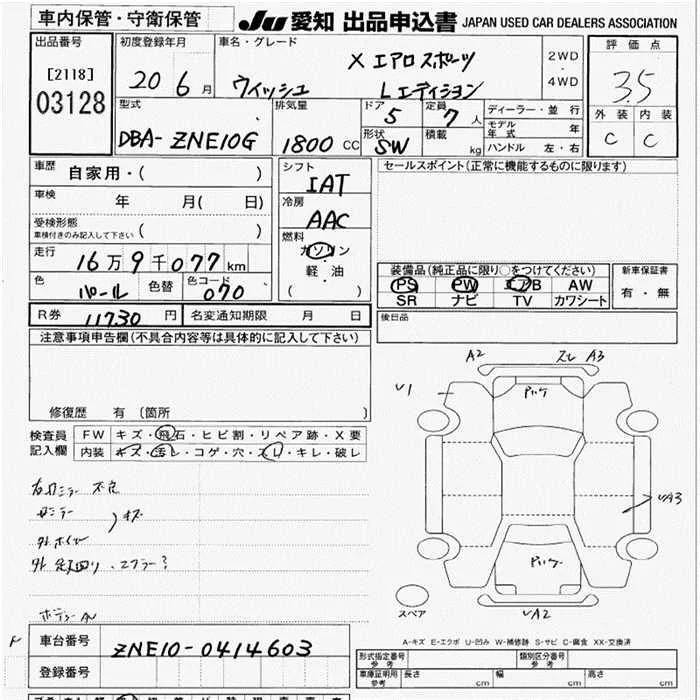 車内保管・守衛保管
JU 愛知 出品申込書 JAPAN USED CAR DEALERS ASSOCIATION
出品番号
[2118]
03128
初度登録年月
20 6 月
車名・グレード
X エアロスポーツ
ウィッシュ Lエディション
2WD
・
4WD
評価点
3.5
外装 内装
C C
型式
DBA-ZNE10G
排気量
1800 CC
ドア
5
定員
7 人
形状
SW
積載
kg
ディーラー・並行
モデル年式 年
ハンドル 左・右
車歴 自家用・( )
車検 年 月( 日)
受検形態
車検付きのみ記入して下さい ( )
走行 16万9千077km
色 パール 色替 色コード 070
シフト
IAT
冷房
AAC
燃料
ガソリン
・
軽・油
( )
セールスポイント(正常に機能するものに限ります)
装備品(純正品に限り○をつけてください)
PS PW エアB AW
SR ナビ TV カワシート
新車保証書
有・無
R券 11730 円 名変通知期限 月 日
後日品
注意事項申告欄(不具合内容等は具体的に記入して下さい)
修復歴 有 〔箇所 〕
検査員 FW キズ・飛石・ヒビ割・リペア跡・X要
記入欄 内装 キズ・汚レ・コゲ・穴・スレ・キレ・破レ
A2 スレ A3
U1
UA3
UA2
スペア
A-キズ E-エクボ U-凹み W-補修跡 S-サビ C-腐食 XX-交換済
車台番号 ZNE10-0414603
登録番号
形式指定番号 参考
類別区分番号 参考
車庫証明用 参考 長さ cm 幅 cm 高さ cm